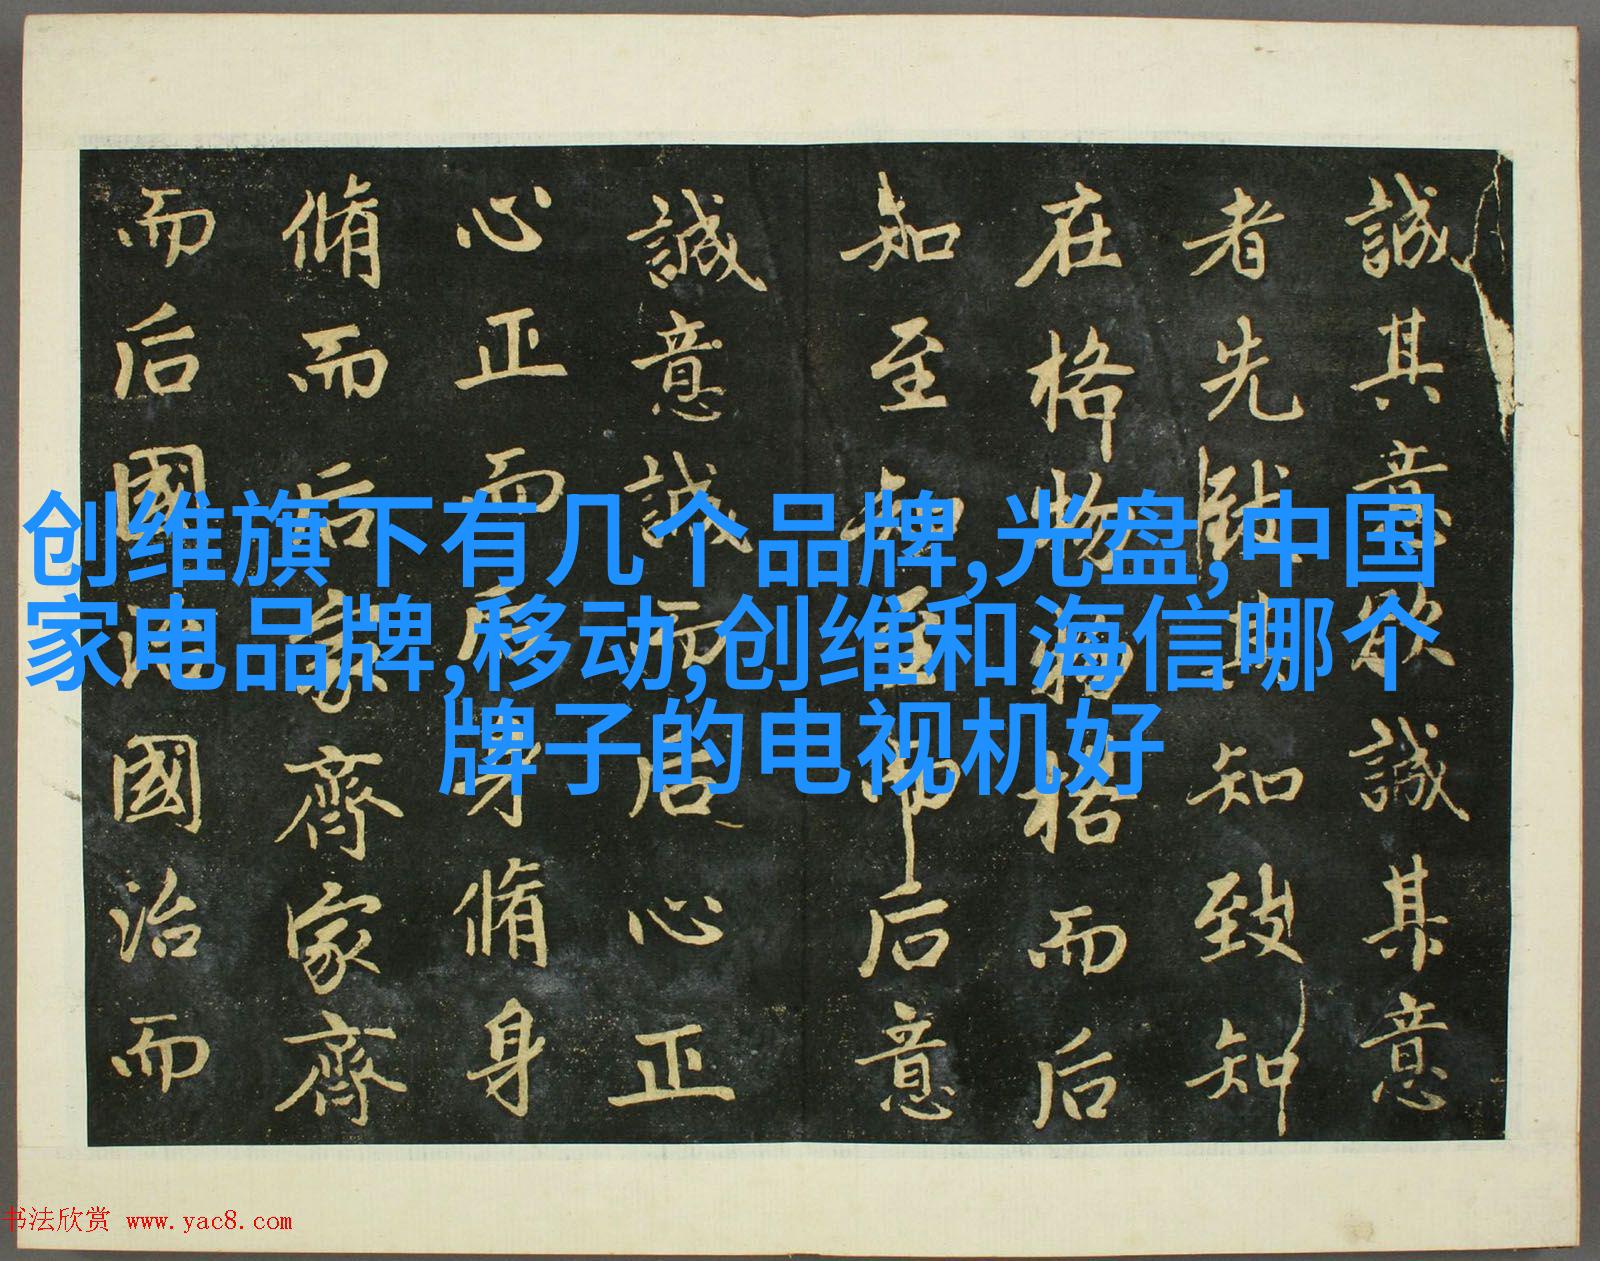 誠其意欲誠其意
者先致其知致知
在格物物格而后
知至知至而后意
誠意誠而后心正
心正而后身脩身
脩而后家齊家齊
而后國治國治而
创维旗下有几个品牌,光盘,中国
家电品牌,移动,创维和海信哪个
牌子的电视机好
书法欣赏 www.yac8.com